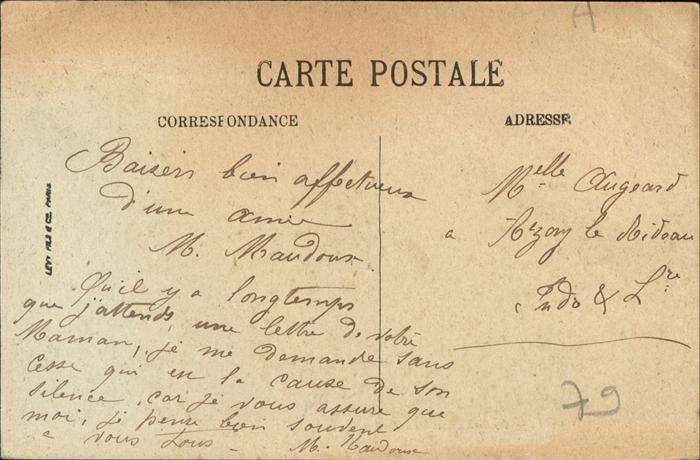 A
CARTE POSTALE
CORRESPONDANCE
ADRESSE
LEVY FILS & CIE PARIS
Baisers bien affectueux
d'une amie
M. Maudoux
Qu'il y a longtemps
que j'attends, une lettre de votre
Maman, je me demande sans
cesse qui est la cause de son
silence, car je vous assure que
moi, je pense bien souvent
a vous tous -
M. Maudoux
Melle Augeard
a Azay le Rideau
Indre & Lre
79